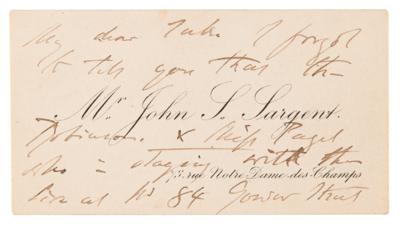 My dear Luke I forgot
to tell you that the
Mr. John S. Sargent.
Robinsons & Miss Paget
who is staying with them
73. rue Notre-Dame-des-Champs
are at No 84 Gower Street